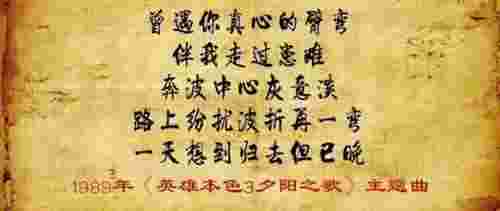 曾遇你真心的臂弯
伴我走过患难
奔波中心灰意淡
路上纷扰波折再一弯
一天想到归去但已晚
1989年《英雄本色3夕阳之歌》主题曲